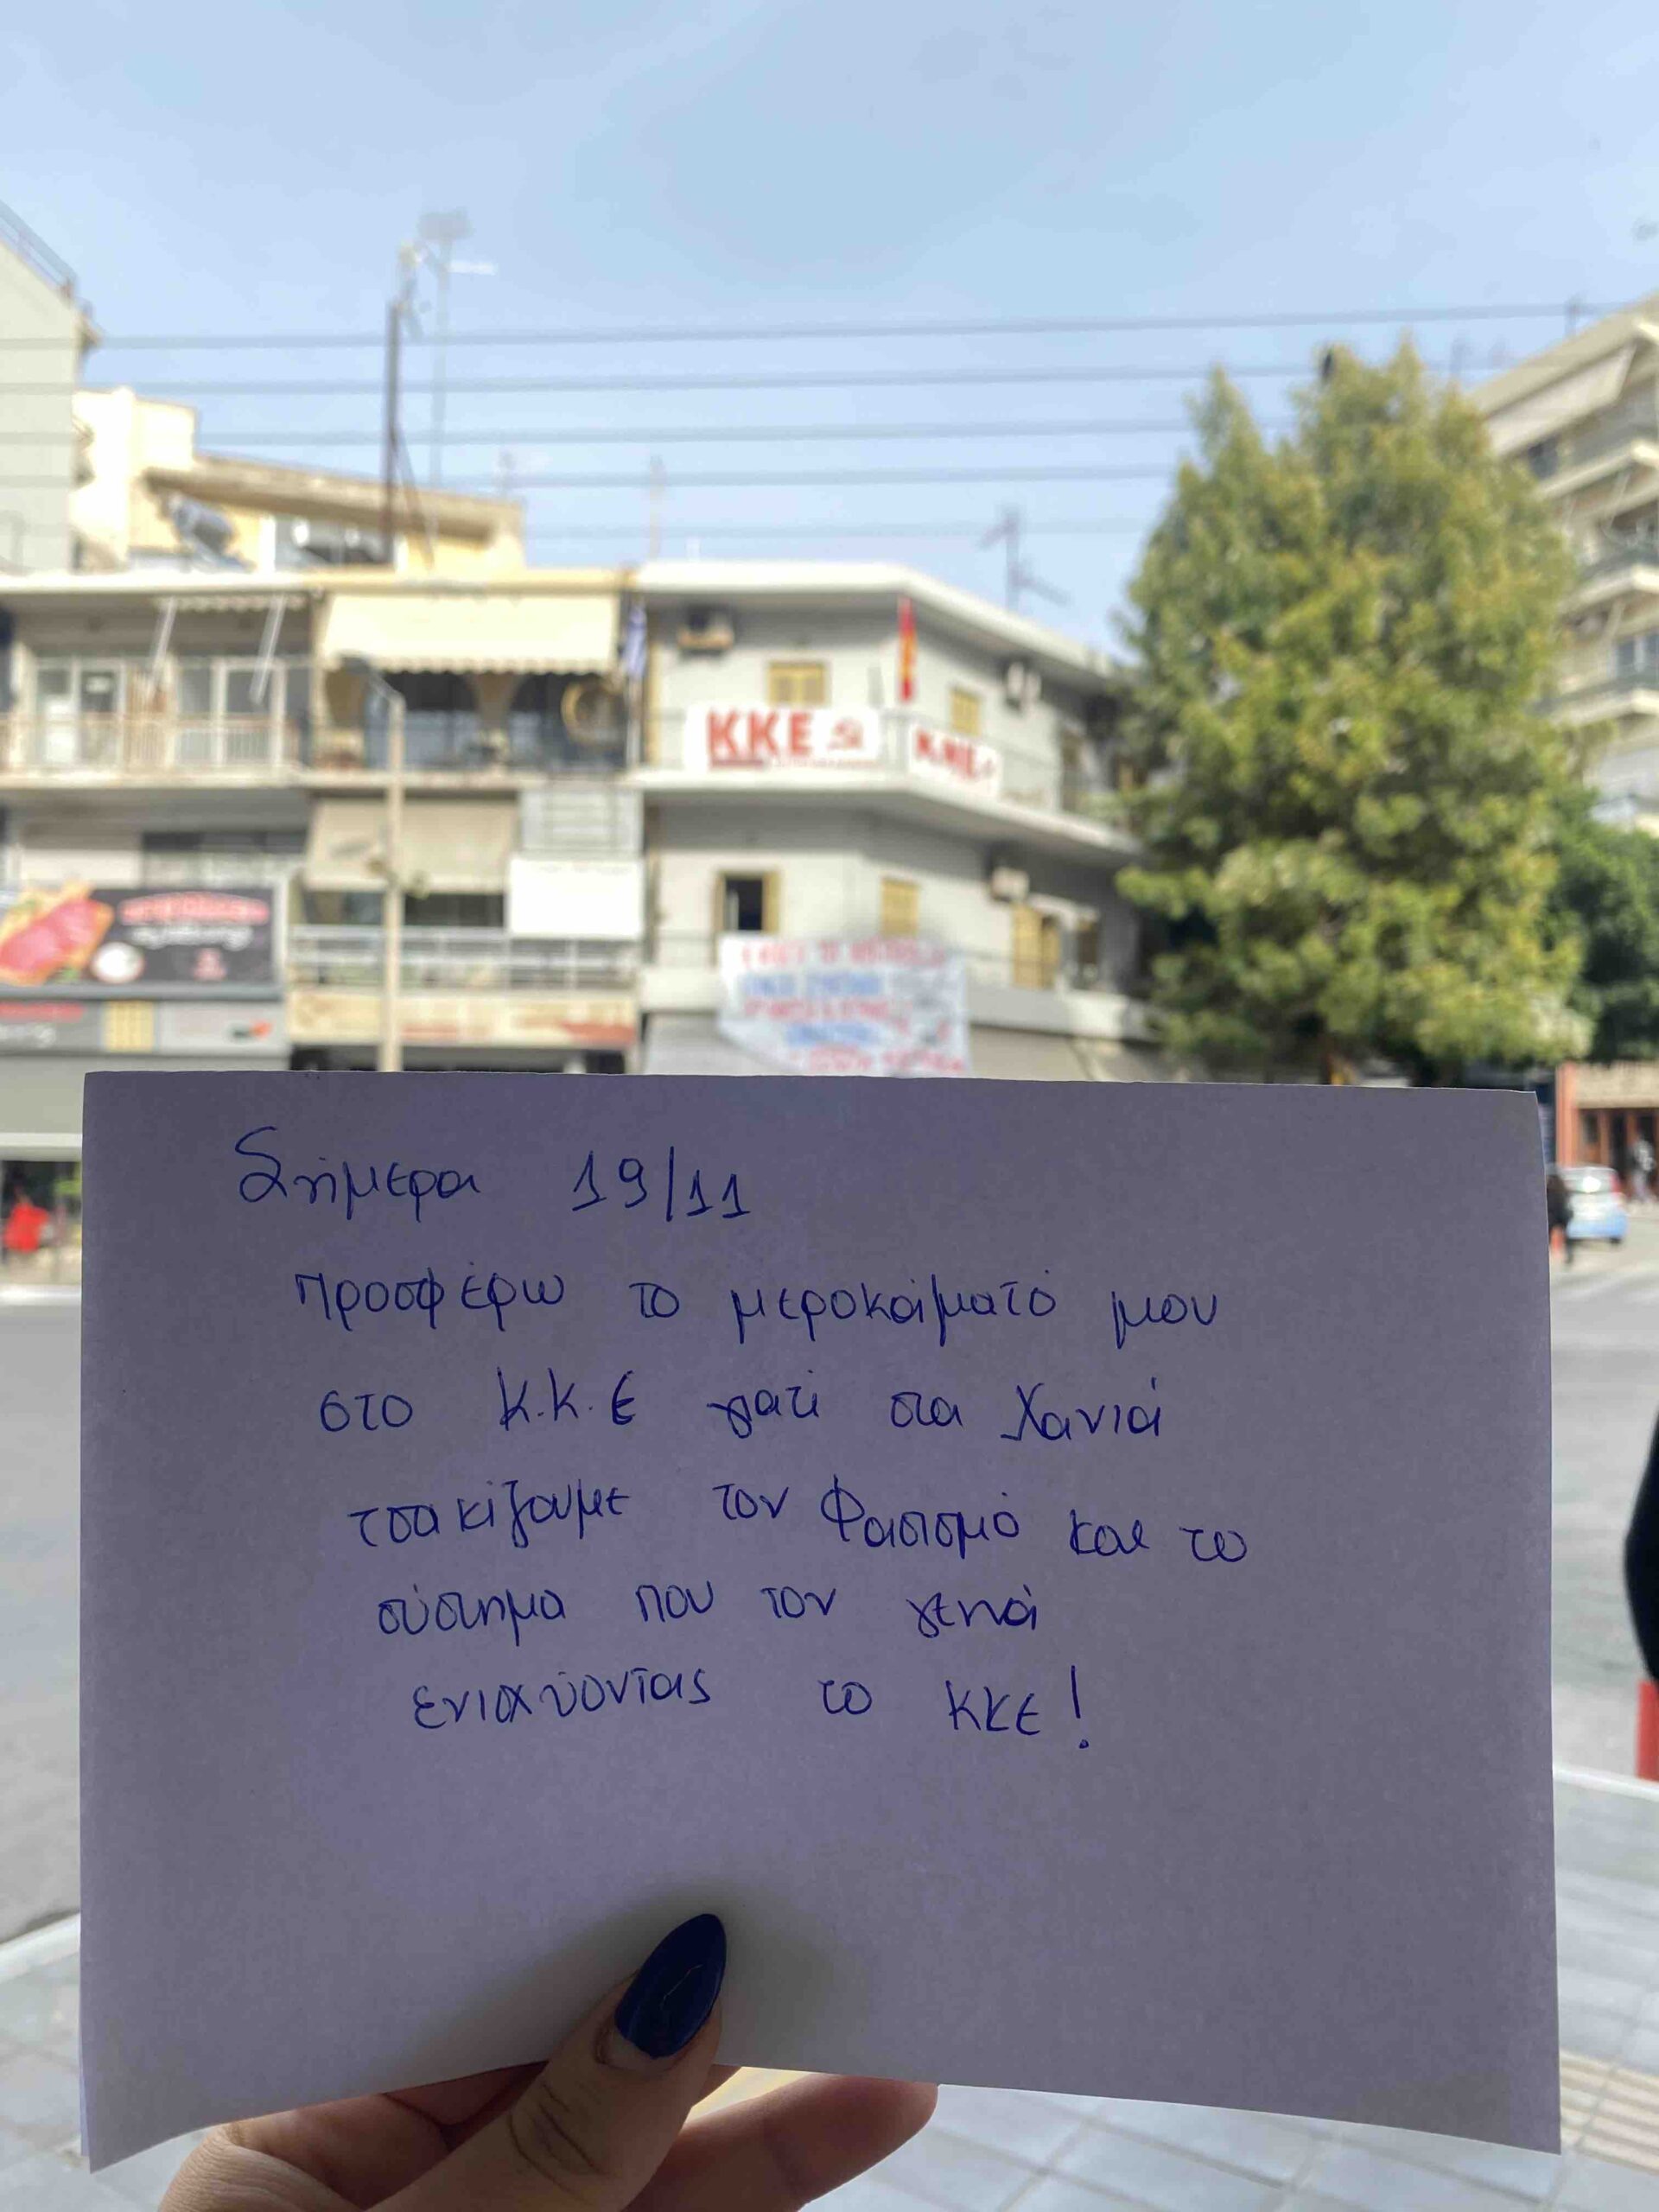 ΚΚΕ
ΚΝΕ
Σήμερα 19/11
προσφέρω το μεροκάματό μου
στο Κ.Κ.Ε γιατί στα Χανιά
τσακίζουμε τον Φασισμό και το
σύστημα που τον γεννά
ενισχύοντας το ΚΚΕ!